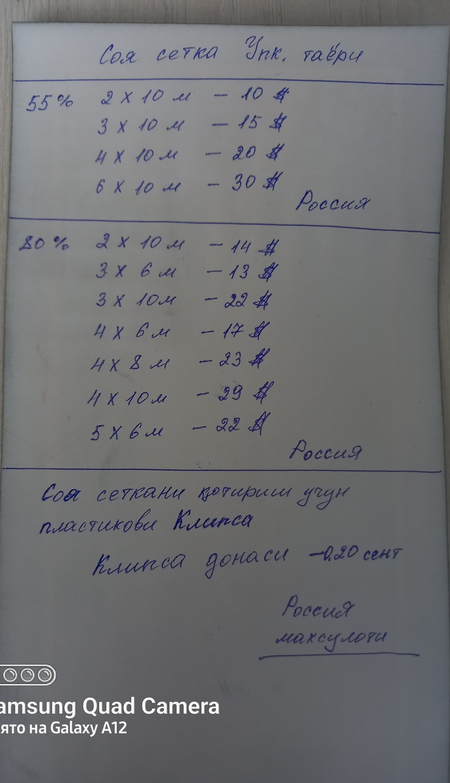 Соя сетка Упк. таёри
55% 2 х 10 м – 10 $
3 х 10 м – 15 $
4 х 10 м – 20 $
6 х 10 м – 30 $
Россия
80% 2 х 10 м – 14 $
3 х 6 м – 13 $
3 х 10 м – 22 $
4 х 6 м – 17 $
4 х 8 м – 23 $
4 х 10 м – 29 $
5 х 6 м – 22 $
Россия
Соя сеткани қотириш учун
пластикови Клипса
Клипса донаси – 0,20 сент
Россия
махсулоти
amsung Quad Camera
ято на Galaxy A12